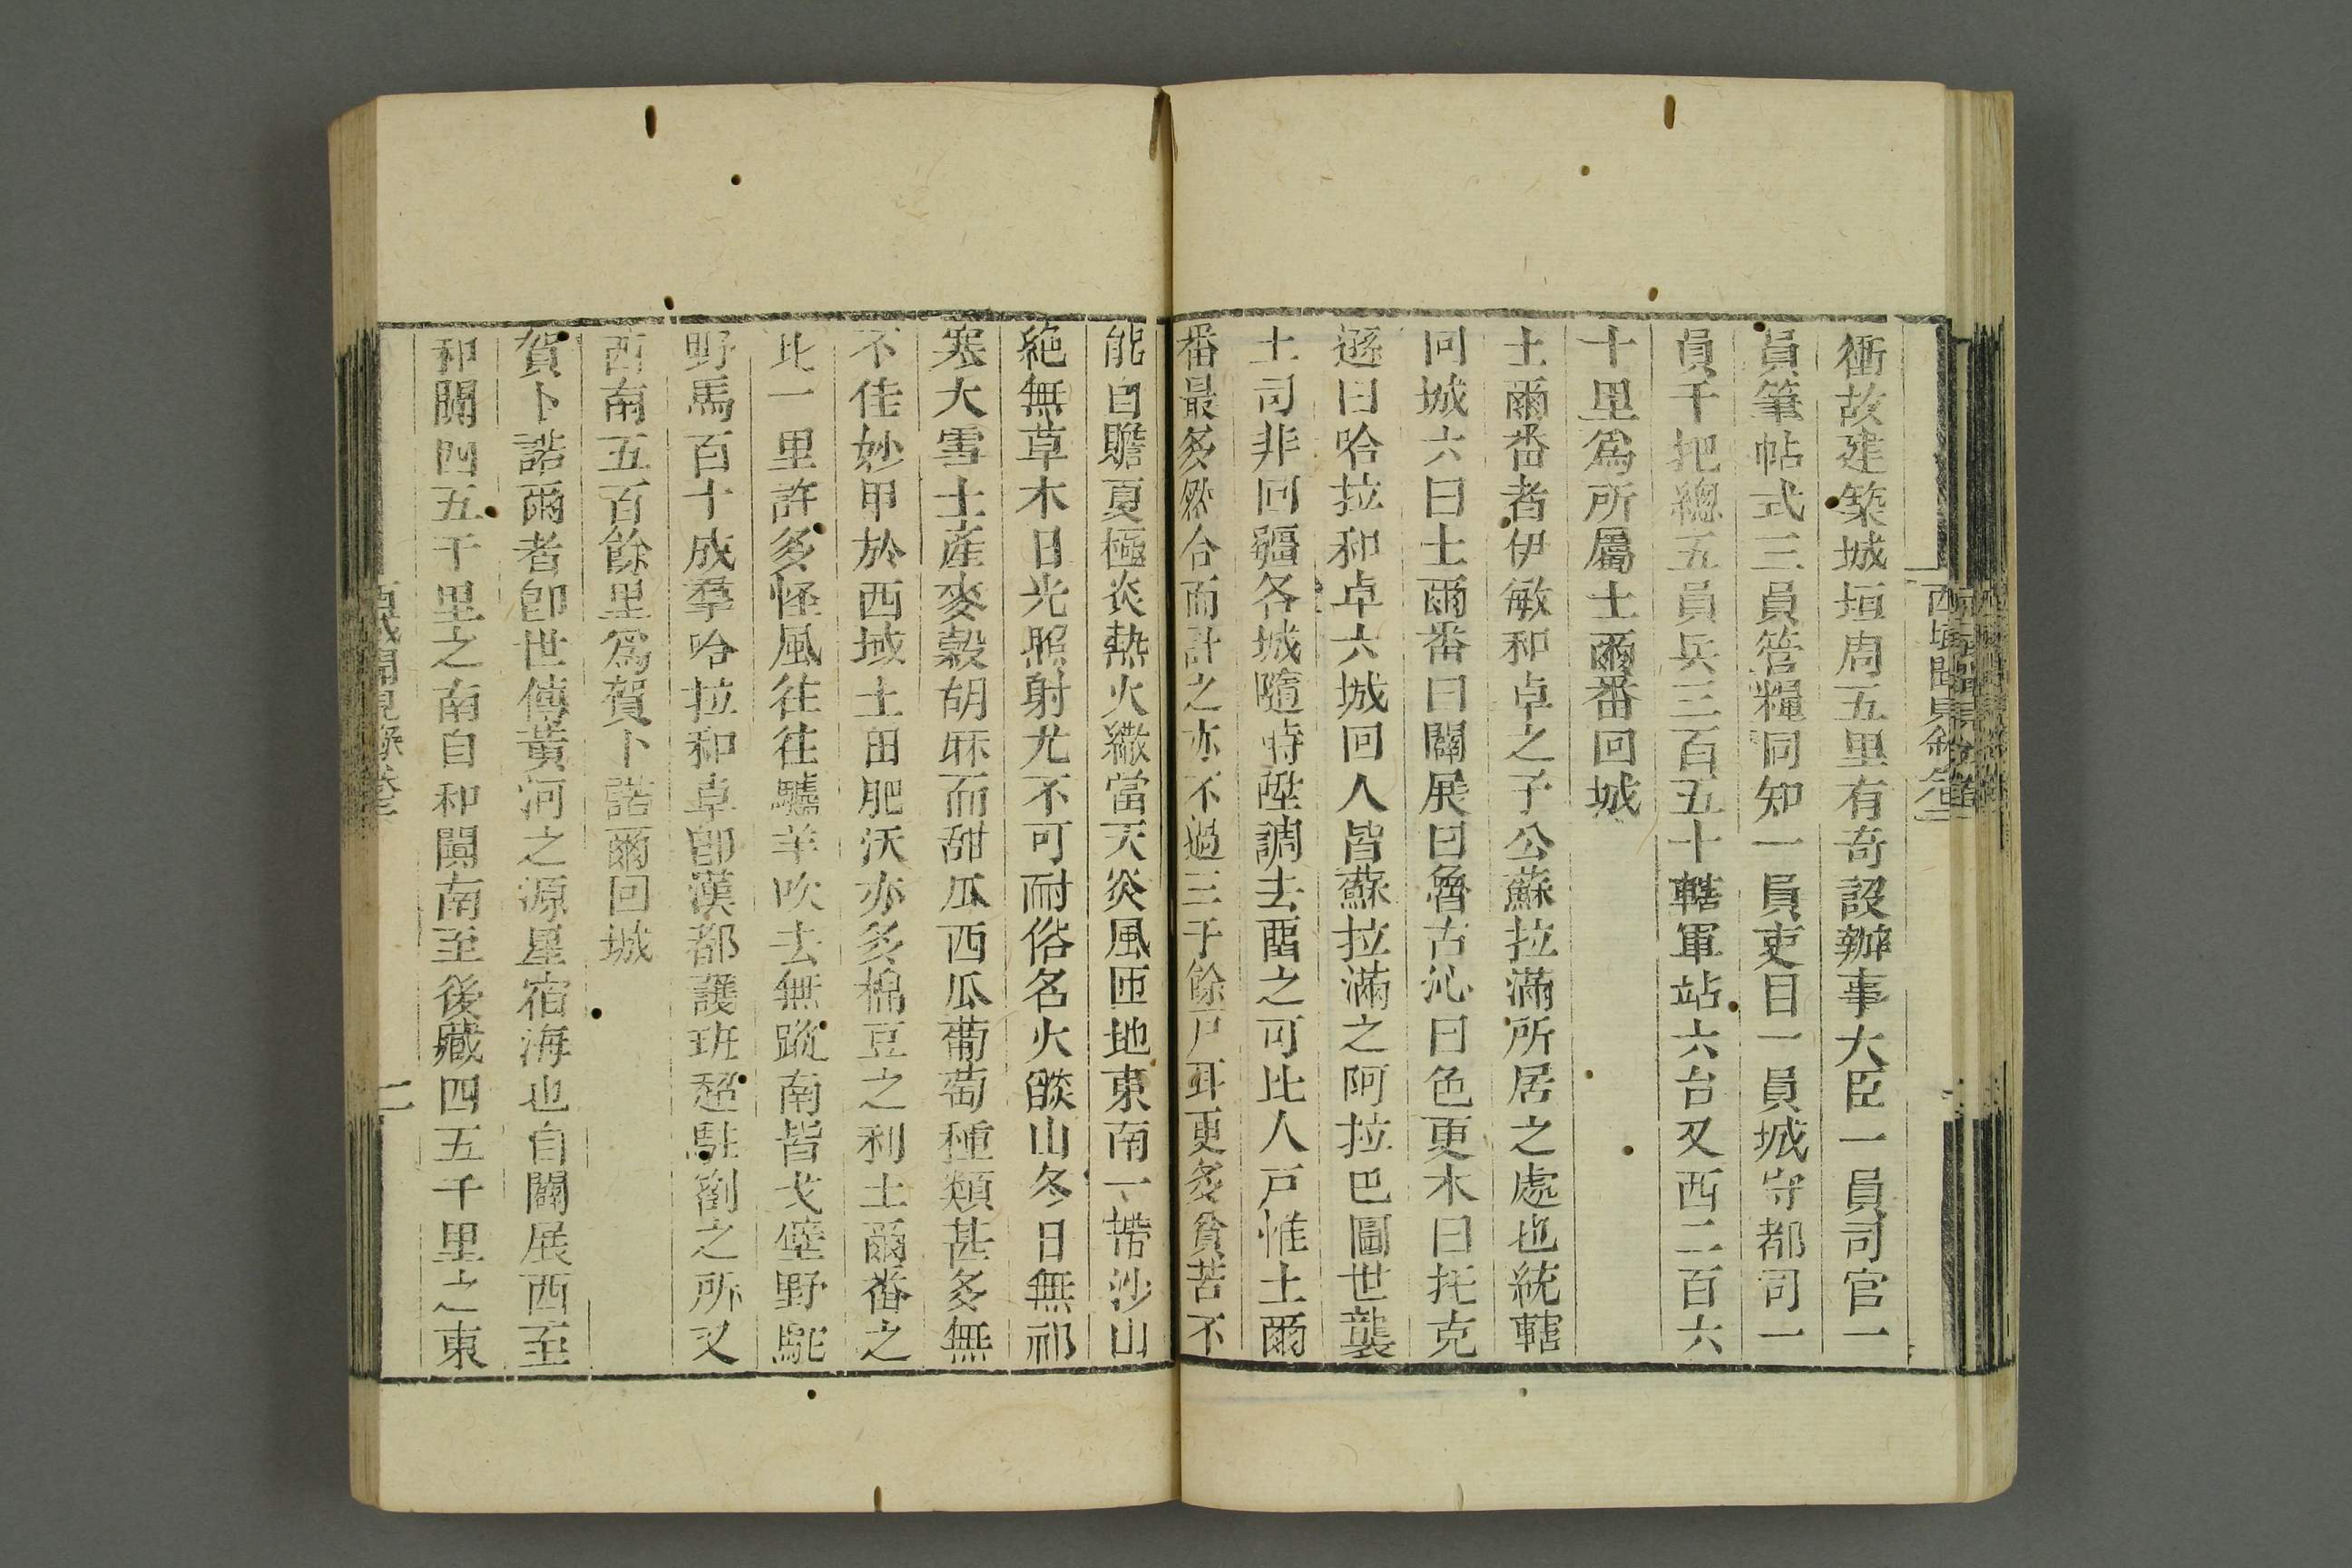 衝故建築城垣周五里有奇設辦事大臣一員司官一
員筆帖式三員管糧同知一員吏目一員城守都司一
員千把總五員兵三百五十轄軍站六台又西二百六
十里爲所屬土爾番回城
土爾番者伊敏和卓之子公蘇拉滿所居之處也統轄
回城六曰土爾番曰闢展曰魯古沁曰色更木曰托克
遜曰哈拉和卓六城回人皆蘇拉滿之阿拉巴圖世襲
土司非回疆各城隨時陞調去畱之可比人戸惟土爾
番最多然合而計之亦不過三千餘戸耳更多貧苦不
能自贍夏極炎熱火繖當天炎風匝地東南一帶沙山
絶無草木日光照射尤不可耐俗名火燄山冬日無祁
寒大雪土產麥穀胡麻而甜瓜西瓜葡萄種類甚多無
不佳妙甲於西域土田肥沃亦多棉豆之利土爾番之
北一里許多怪風往往驢羊吹去無蹤南皆戈壁野駝
野馬百十成羣哈拉和卓卽漢都護班超駐劄之所又
西南五百餘里爲賀卜諾爾回城
賀卜諾爾者卽世傳黃河之源星宿海也自闢展西至
和闐四五千里之南自和闐南至後藏四五千里之東
西域聞見錄卷三
二